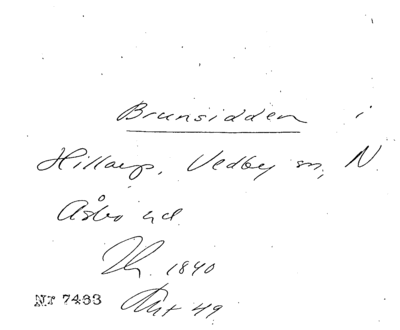 Brunsidden i
Hillarp, Vedby sn, N.
Åsbo hd.
1840
Nr 7433 49